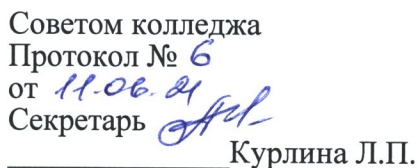 Советом колледжа
Протокол № 6
от 11.06.21
Секретарь
Курлина Л.П.